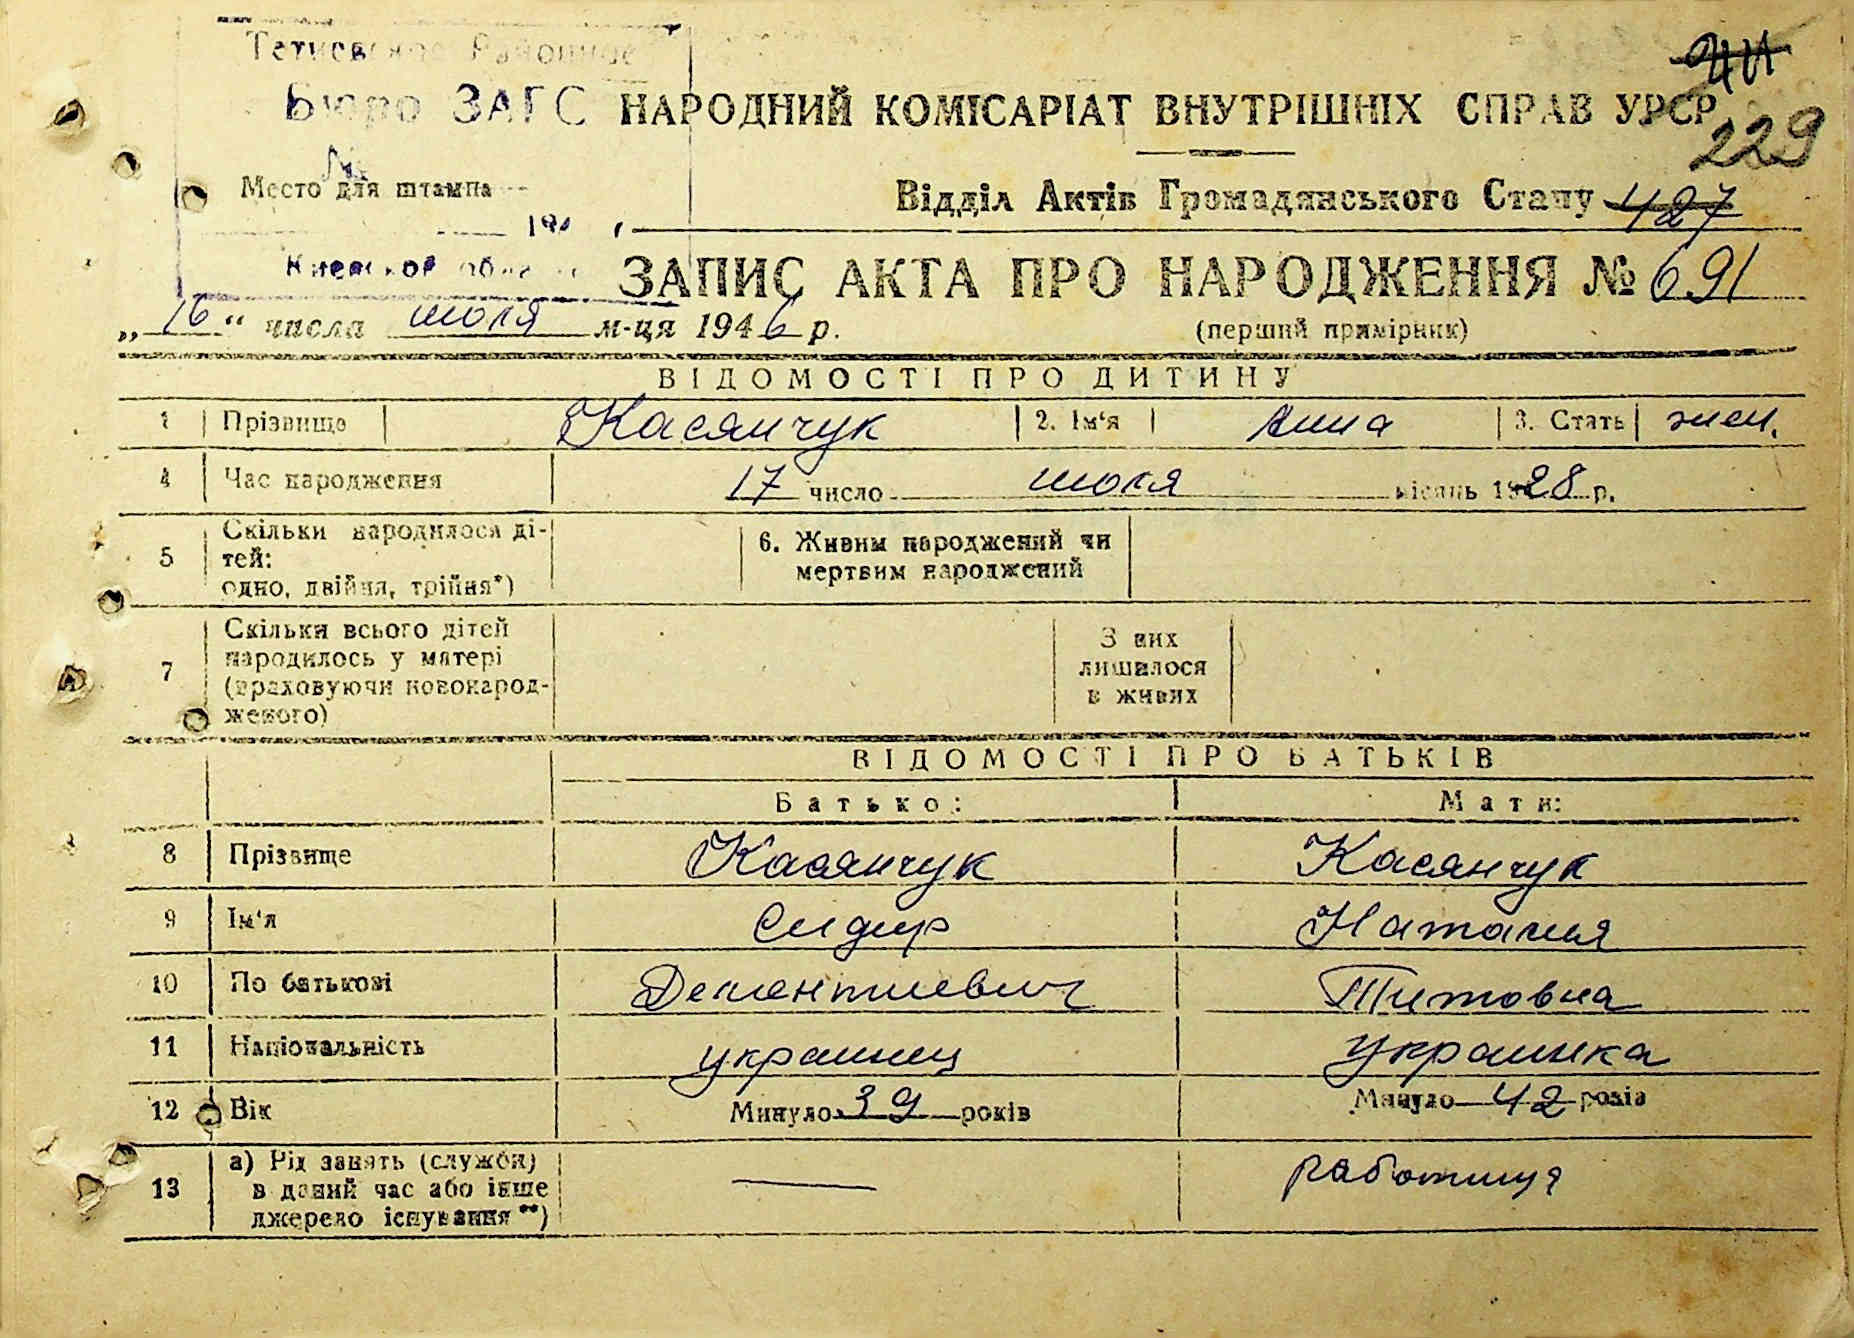 Районное
Бюро ЗАГС
№
Место для штампа
194
Киевской обл
411
229
НАРОДНИЙ КОМІСАРІАТ ВНУТРІШНІХ СПРАВ УРСР
Відділ Актів Громадянського Стану 427
ЗАПИС АКТА ПРО НАРОДЖЕННЯ № 691
„16“ числа июля м-ця 1946 р. (перший примірник)
ВІДОМОСТІ ПРО ДИТИНУ
1 Прізвище Касянчук 2. Ім'я Анна 3. Стать жен.
4 Час народження 17 число июля місяць 1928 р.
5 Скільки народилося ді-
тей:
одно, двійня, трійня*)
6. Живим народжений чи
мертвим народжений
7 Скільки всього дітей
народилось у матері
(враховуючи новонарод-
женого)
З них
лишилося
в живих
ВІДОМОСТІ ПРО БАТЬКІВ
Батько: Мати:
8 Прізвище Касянчук Касянчук
9 Ім'я Сидир Наталия
10 По батькові Дементиевич Титовна
11 Національність украинец украинка
12 Вік Минуло 39 років Минуло 42 років
13 а) Рід занять (служби)
в даний час або інше
джерело існування**)
— работница